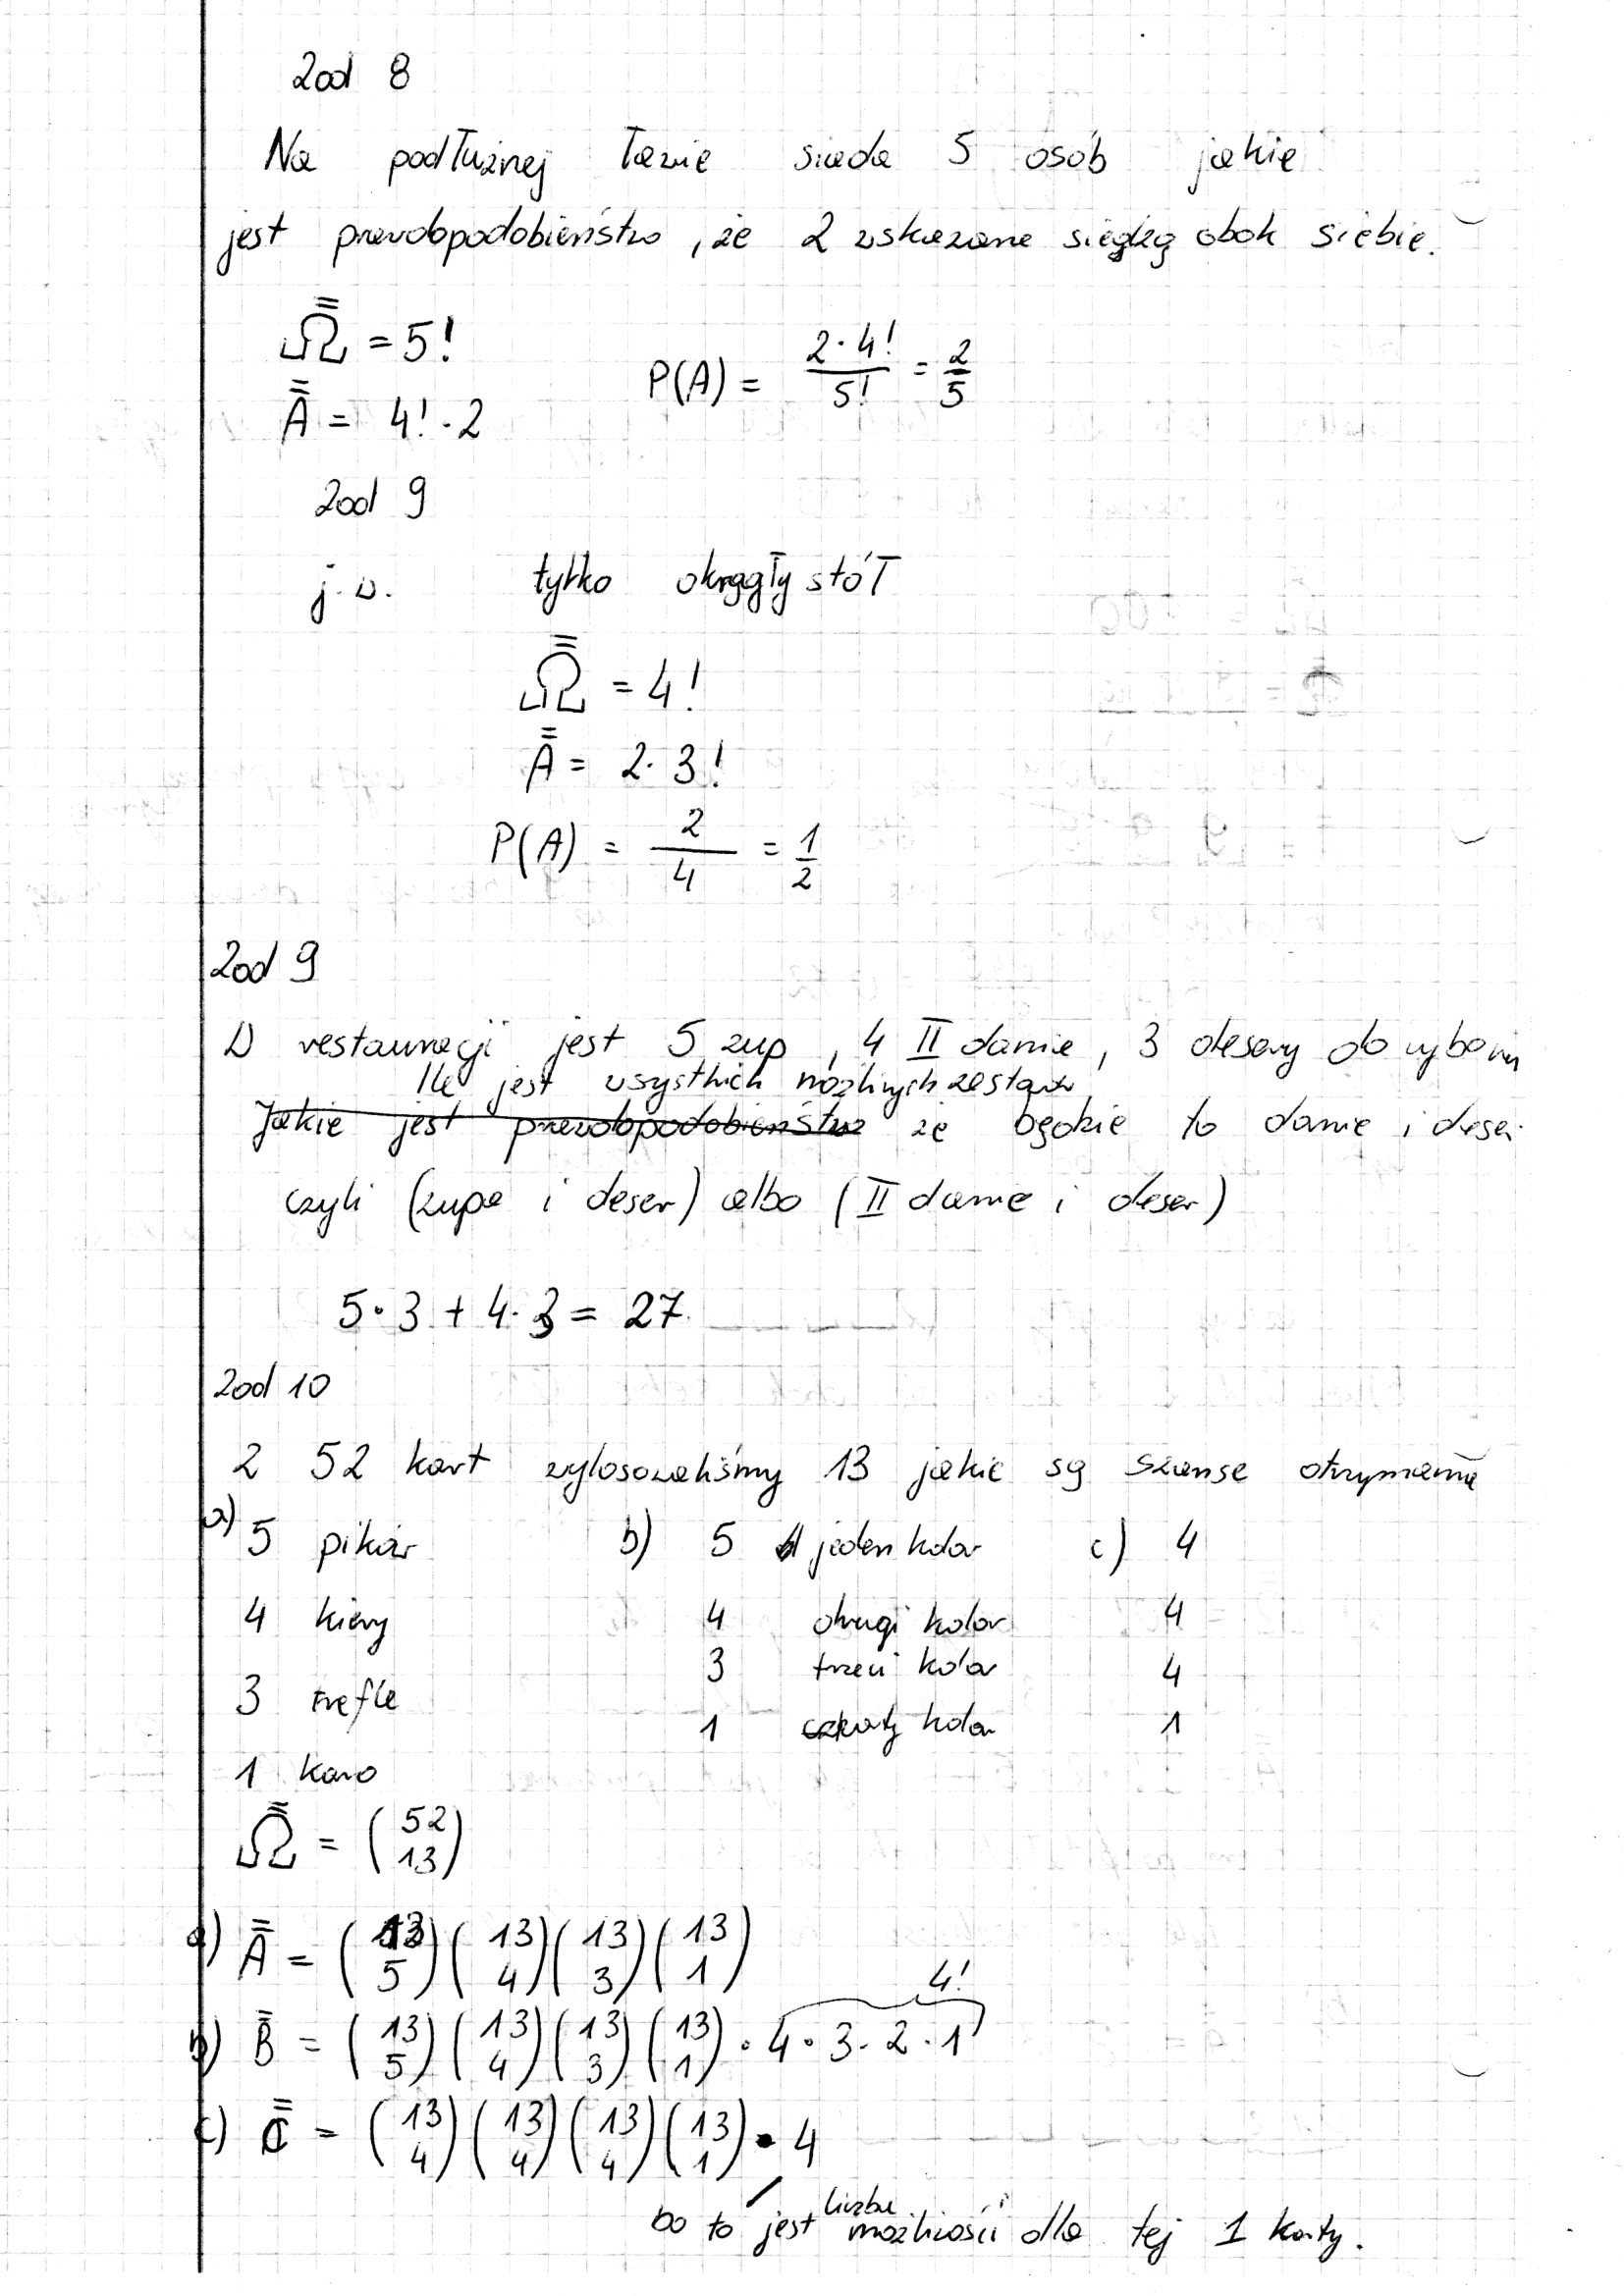 Zad 8
Na podłużnej ławie siada 5 osób jakie
jest prawdopodobieństwo, że 2 wskazane siędzą obok siebie.
Ω̿ = 5!
A̿ = 4! · 2
P(A) = 2·4!/5! = 2/5
Zad 9
j.w. tylko okrągły stół
Ω̿ = 4!
A̿ = 2·3!
P(A) = 2/4 = 1/2
Zad 9
W restauracji jest 5 zup, 4 II dania, 3 desery do wyboru
Ile jest wszystkich możliwych zestaw
Jakie jest prawdopodobieństwo że będzie to danie i deser
czyli (zupa i deser) albo (II danie i deser)
5·3 + 4·3 = 27
Zad 10
Z 52 kart wylosowaliśmy 13 jakie są szanse otrzymania
a) 5 pików b) 5 jeden kolor c) 4
4 kiery 4 drugi kolor 4
3 trefle 3 trzeci kolor 4
1 karo 1 czwarty kolor 1
Ω̿ = (52 13)
a) A̿ = (13 5)(13 4)(13 3)(13 1)
4!
b) B̿ = (13 5)(13 4)(13 3)(13 1) · 4·3·2·1
c) C̿ = (13 4)(13 4)(13 4)(13 1) · 4
bo to jest liczba możliwości dla tej 1 karty.